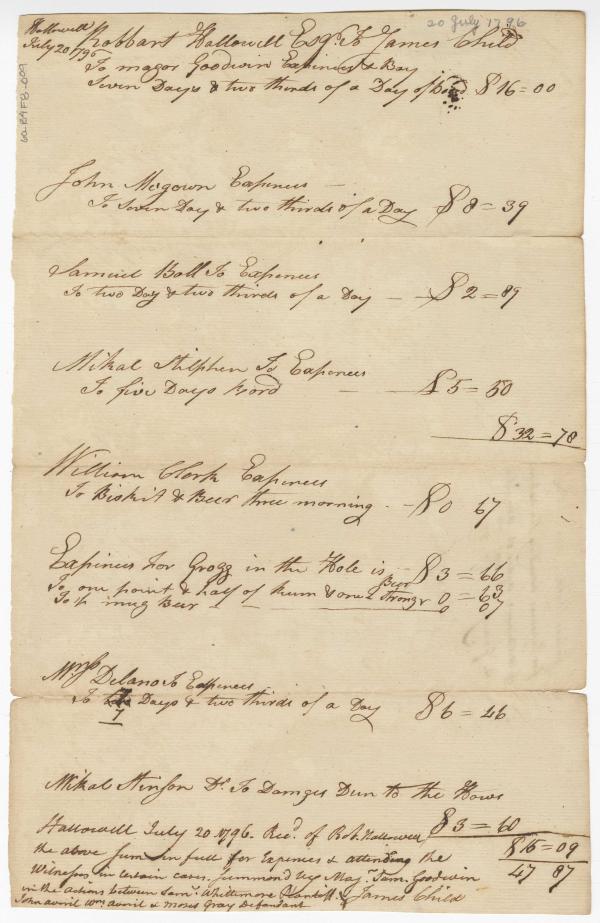 20 July 1796
Hallowell
July 20 1796
Robbart Hallowell Esqr. To James Child
To magor Goodwin Expences & Boy
Seven Days & two thirds of a Day of Bord $16=00
60-B9 FB-009
John Magown Expences —
To Seven Day & two thirds of a Day $8=39
Samuel Ball To Expences
To two Day & two thirds of a Day — — $2=89
Mikal Stilphen To Expences
To five Days Bord — — $5=50
$32=78
William Clork Expences
To Biskit & Beer three morning - — $0 67
Expinces For Grogg in the Hole is — $3=66
To one point & half of Rum & one Strong Beer 0=63
To 1 mug Beer — — 0 07
Delano To Expences
To 7 Days & two thirds of a Day $6=46
7
Mikal Stinson Dr. To Damges Dun to the Hows
$3=60
Hallowell July 20 1796. Recd. of Robt. Hallowell
$15=09
the above sum in full for Expences & attending the
47 87
Witnesses in Certain cases, summond by Majr. Saml. Goodwin
in the actions between Saml. Whittimore Plantiff &
James Child
John avrill Wm. avrill & Moses Gray Defendant